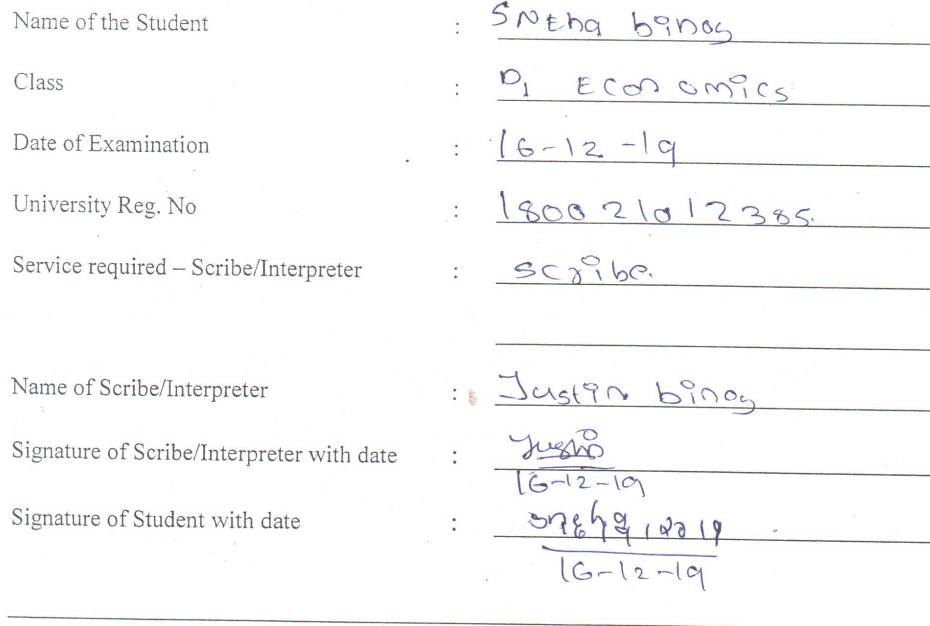 Name of the Student : SNEha binoy
Class : D1 Economics
Date of Examination : 16-12-19
University Reg. No : 180021012385.
Service required – Scribe/Interpreter : scribe.
Name of Scribe/Interpreter : Justin binoy
Signature of Scribe/Interpreter with date : Justin
16-12-19
Signature of Student with date :
16-12-19